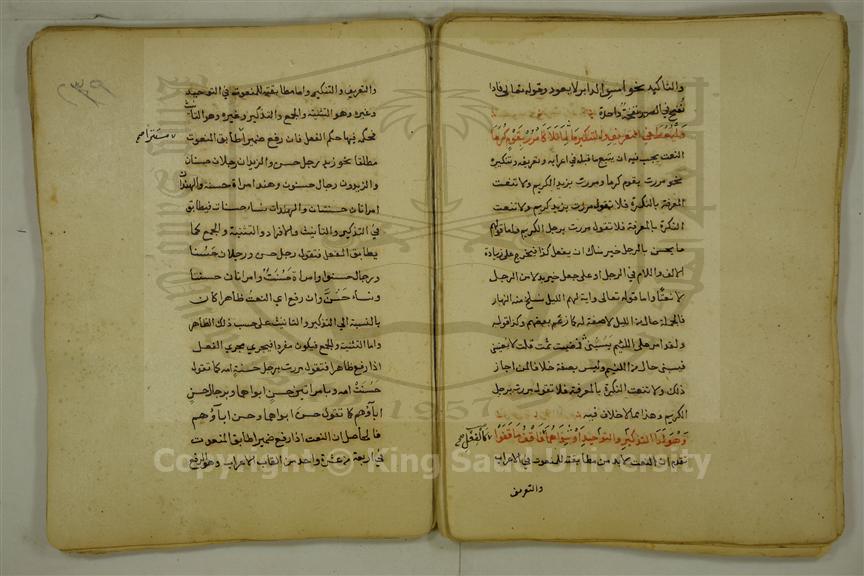 والتاكيد نحو امس الدابر لا يعود وقوله تعالى فاذا
نفخ في الصور نفخة واحدة
وليعط في التعريف والتنكير ما لما تلا كامرر بقوم كرما
النعت يجب فيه ان يتبع ما قبله في اعرابه وتعريفه وتنكيره
نحو مررت بقوم كرما ومررت بزيد الكريم ولا تنعت
المعرفة بالنكرة فلا تقول مررت بزيد كريم ولا تنعت
النكرة بالمعرفة فلا تقول مررت برجل الكريم واما قولهم
ما يحسن بالرجل خير منك ان يفعل كذا فيخرج على زيادة
الالف واللام في الرجل او على جعل خير بدلا من الرجل
لا نعتا واما قوله تعالى واية لهم الليل نسلخ منه النهار
فالجملة حال من الليل لا صفة له كما زعم بعضهم وكذا قوله
ولقد امر على اللئيم يسبني فمضيت ثمت قلت لا يعنيني
فيسبني حال من اللئيم وليس بصفة خلافا لمن اجاز
ذلك ولا تنعت النكرة بالمعرفة فلا تقول مررت برجل
الكريم وهذا مما لا خلاف فيه
وهو لدا التوحيد والتذكير او سواهما كالفعل فاقف ما قفوا
تقدم ان النعت لا بد من مطابقته للمنعوت في الاعراب
والتعريف
٢٣٩
والتعريف والتنكير واما مطابقته للمنعوت في التوحيد
وغيره وهو التثنية والجمع والتذكير وغيره وهو التانيث
فحكمه فيها حكم الفعل فان رفع ضميرا طابق المنعوت
مستترا صح
مطلقا نحو زيد رجل حسن والزيدان رجلان حسنان
والزيدون رجال حسنون وهند امراة حسنة والهندان
امراتان حسنتان والهندات نساء حسنات فيطابق
في التذكير والتانيث والافراد والتثنية والجمع كما
يطابق الفعل فتقول رجل حسن ورجلان حسنا
ورجال حسنوا وامراة حسنت وامراتان حسنتا
ونساء حسن وان رفع اي النعت ظاهرا كان
بالنسبة الى التذكير والتانيث على حسب ذلك الظاهر
واما التثنية والجمع فيكون مفردا فيجري مجرى الفعل
اذا رفع ظاهرا فتقول مررت برجل حسنة امه كما تقول
حسنت امه وبامراتين حسن ابواهما وبرجال حسن
اباؤهم كما تقول حسن ابواهما وحسن اباؤهم
فالحاصل ان النعت اذا رفع ضميرا طابق المنعوت
في اربعة من عشرة واحد من القاب الاعراب وهو الرفع
Copyright © King Saud University
1957